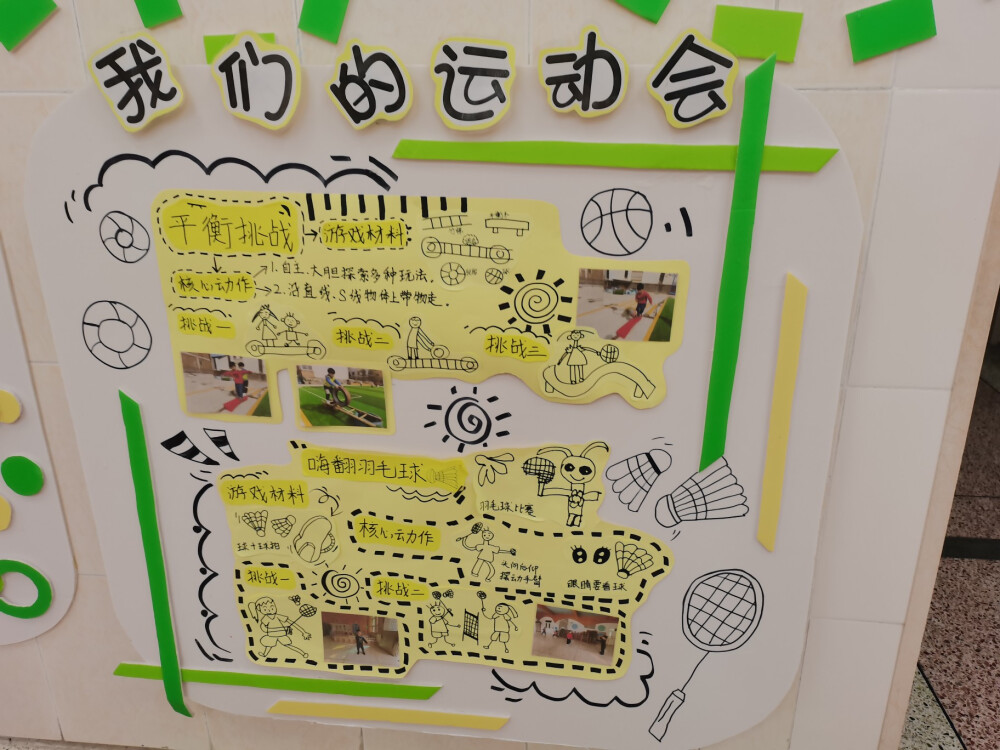 我们的运动会
平衡挑战
游戏材料
核心动作
1.自主、大胆探索多种玩法.
2.沿直线、S线物体上带物走.
挑战一
挑战二
挑战三
嗨翻羽毛球
游戏材料
球+球拍
羽毛球比赛
核心动作
眼睛要看球
挑战一
挑战二